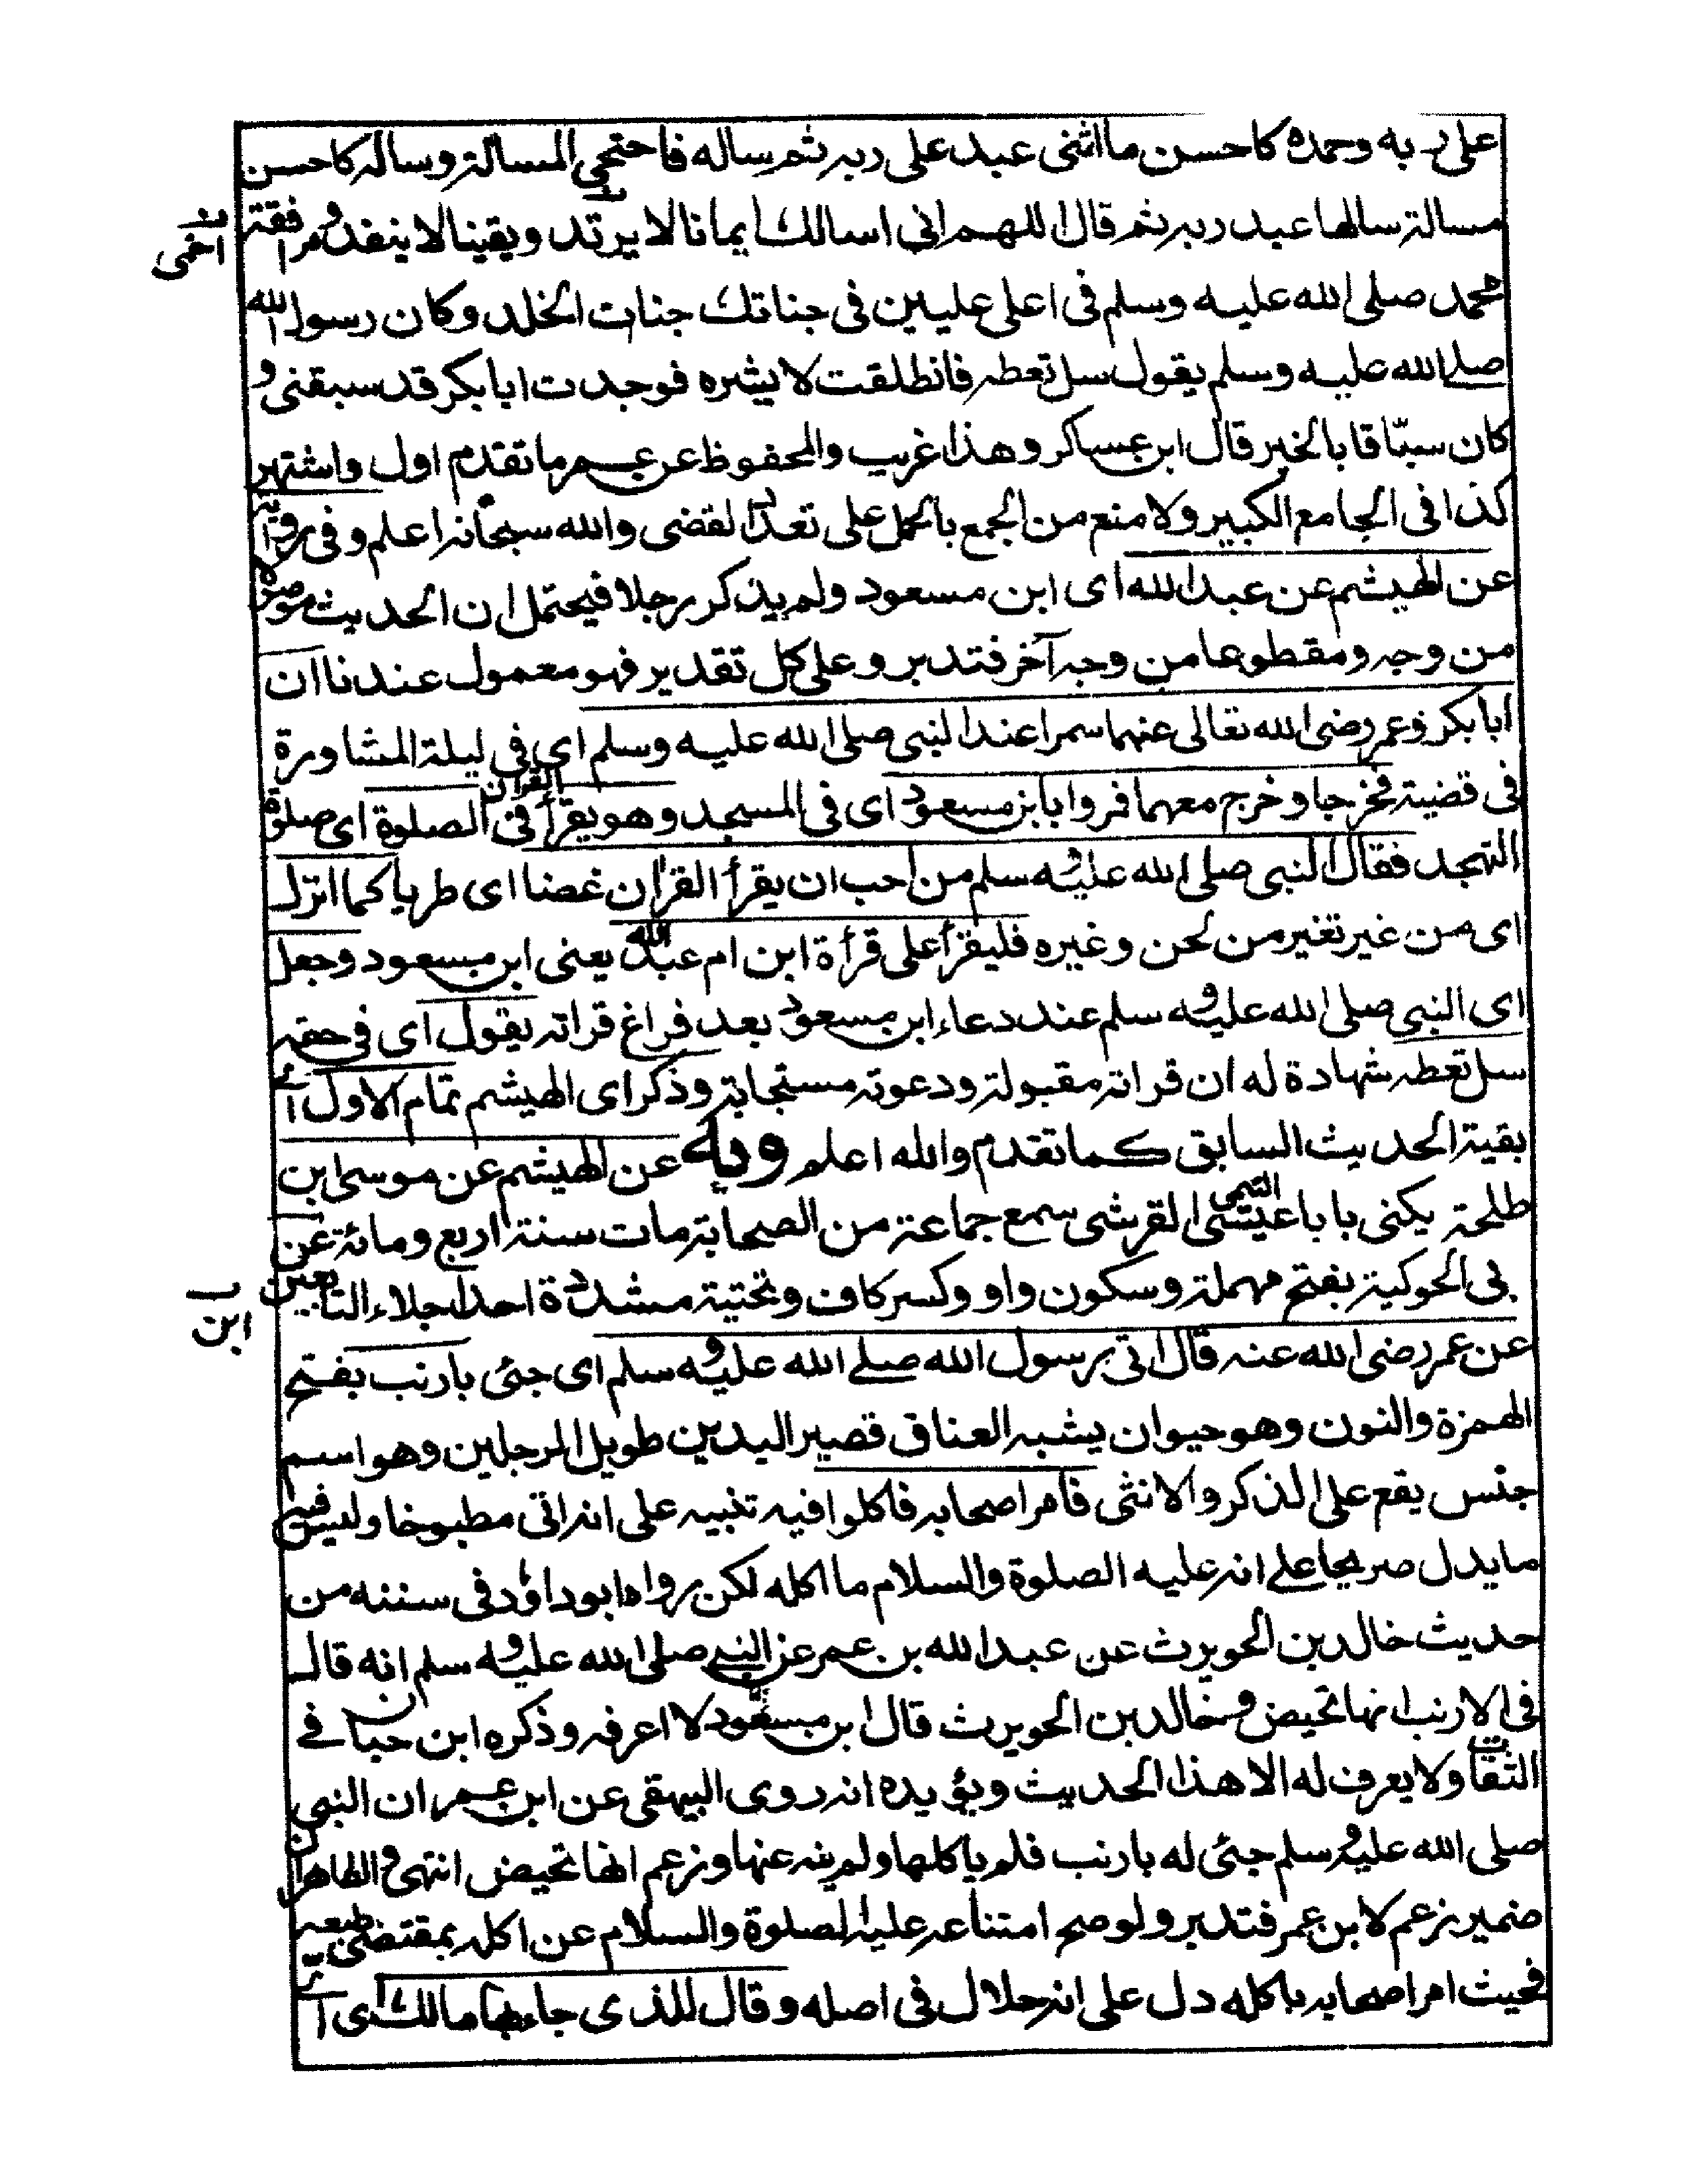 على ربه وحمده كاحسن ما اثنى عبد على ربه ثم ساله فاحتجى المسالة وساله كاحسن
مسالة سالها عبد ربه ثم قال اللهم انى اسالك ايمانا لا يرتد ويقينا لا ينفد ومرافقة
اخمى
محمد صلى الله عليه وسلم فى اعلى عليين فى جناتك جنات الخلد وكان رسول الله
صلے الله عليه وسلم يقول سل تعطه فانطلقت لا بشره فوجدت ابا بكر قد سبقنى و
كان سبّاقا بالخير قال ابن عساكر وهذا غريب والمحفوظ عن عمر ما تقدم اول واشتهر
كذا فى الجامع الكبير ولا منع من الجمع بالحمل على تعدد القضى والله سبحانه اعلم وفى رواية
عن الهيثم عن عبد الله اى ابن مسعود ولم يذكر رجلا فيحتمل ان الحديث موصولا
من وجه ومقطوعا من وجه آخر فتدبر وعلى كل تقدير فهو معمول عندنا ان
ابا بكر وعمر رضى الله تعالى عنهما سمرا عند النبى صلى الله عليه وسلم اى فى ليلة المشاورة
فى قضية فخرجا وخرج معهما فمروا بابن مسعود اى فى المسجد وهو يقرأ القرآن فى الصلوة اى صلوة
التهجد فقال النبى صلى الله عليه وسلم من احب ان يقرأ القرآن غضا اى طريا كما انزل
اى من غير تغير من لحن وغيره فليقرأ على قرأة ابن ام عبد الله يعنى ابن مسعود وجعل
اى النبى صلى الله عليه وسلم عند دعاء ابن مسعود بعد فراغ قراته يقول اى فى حقه
سل تعطه شهادة له ان قراته مقبولة ودعوته مستجابة وذكر اى الهيثم تمام الاول اے
بقية الحديث السابق كما تقدم والله اعلم وبه عن الهيثم عن موسى ابن
طلحة يكنى بابا عيسى التيمى القرشى سمع جماعة من الصحابة مات سنة اربع ومائة عن
ابن
بى الحوكية بفتح مهملة وسكون واو وكسر كاف وتحتية مشددة احد اجلاء التابعين
عن عمر رضى الله عنه قال اتى برسول الله صلے الله عليه وسلم اى جئى بارنب بفتح
الهمزة والنون وهو حيوان يشبه العناق قصير اليدين طويل الرجلين وهو اسم
جنس يقع على الذكر والانثى فامر اصحابه فاكلوا فيه تنبيه على انه اتى مطبوخا وليس فيه
ما يدل صريحا علے انه عليه الصلوة والسلام ما اكله لكن رواه ابو داؤد فى سننه من
حديث خالد بن الحويرث عن عبد الله بن عمر عن النبے صلى الله عليه وسلم انه قال
فى الارنب انها تحيض وخالد بن الحويرث قال ابن مسعود لا اعرفه وذكره ابن حبان فے
الثقات ولا يعرف له الا هذا الحديث ويؤيده انه روى البيهقى عن ابن عمر ان النبى
صلى الله عليه وسلم جئى له بارنب فلم ياكلها ولم ينه عنها وزعم انها تحيض انتهى والظاهر ان
ضمير زعم لابن عمر فتدبر ولو صح امتناعه عليه الصلوة والسلام عن اكله بمقتضى طبعه
فحيث امر اصحابه باكله دل على انه حلال فى اصله وقال للذى جاء بها مالك اى اے